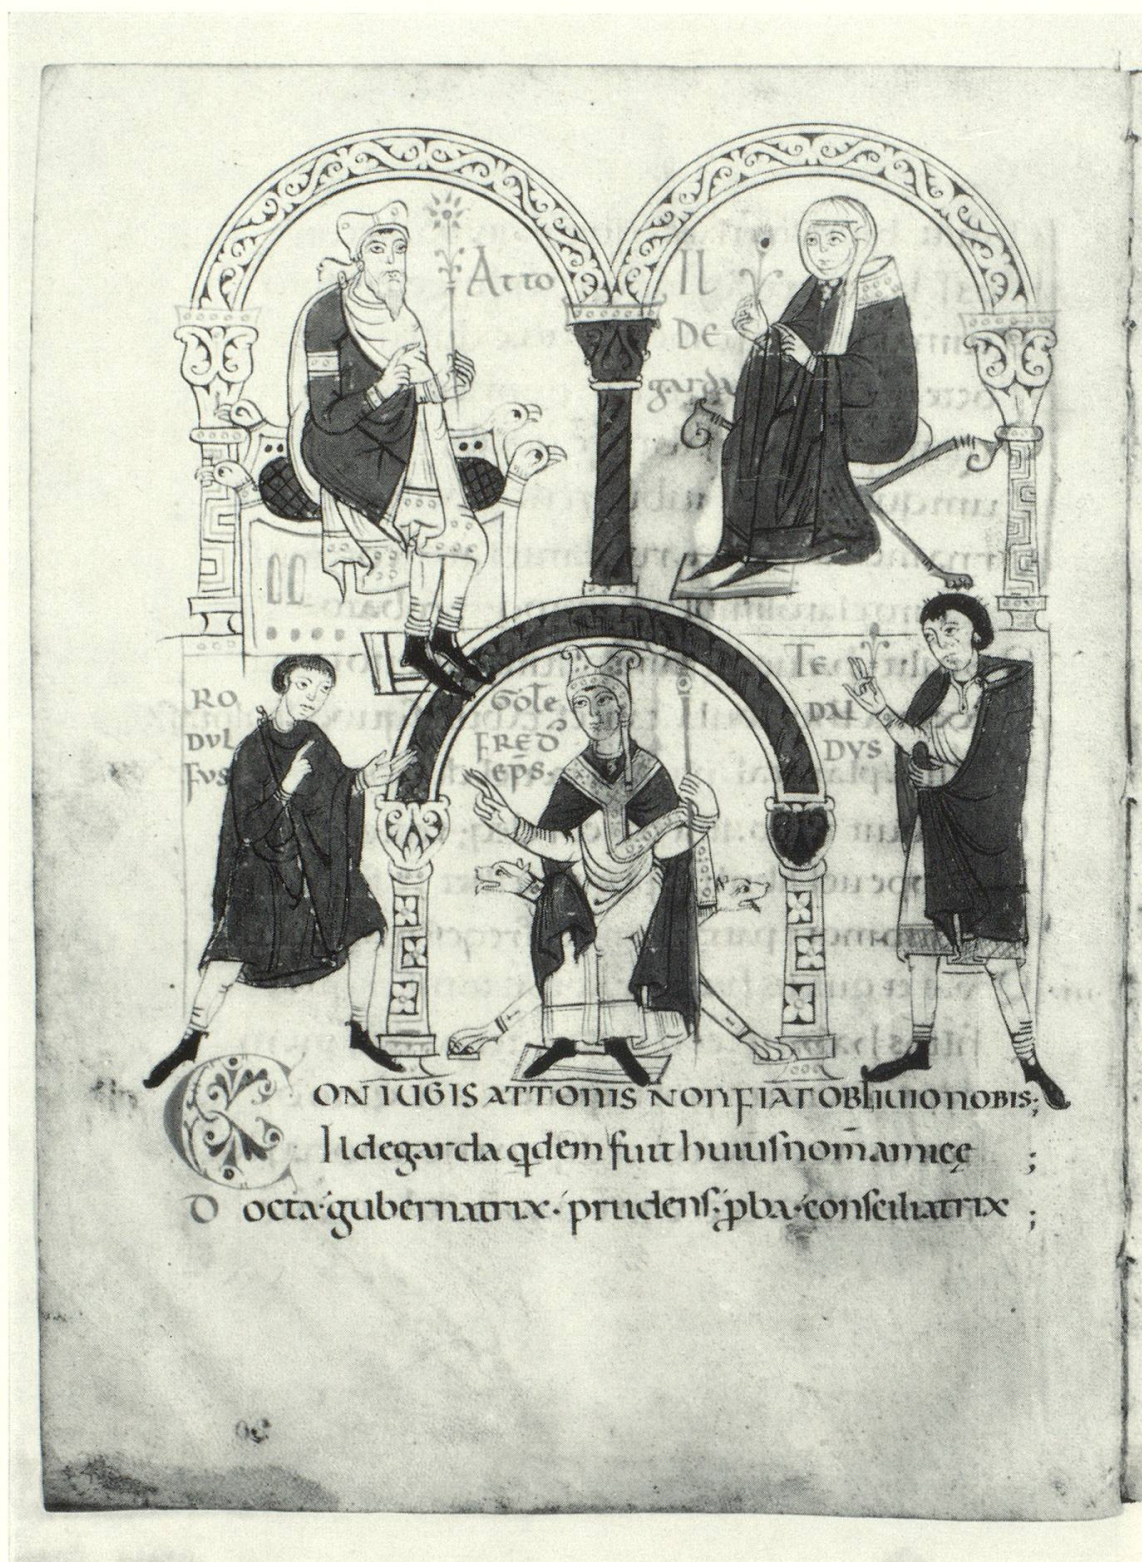 Atto
IL
DE
garda
RO
DUL
FUS
GOTE
FRED
EPS.
TE
DAL
DUS
CONIUGIS ATTONIS NON FIAT OBLIUIO NOBIS;
Ildegarda qdem fuit huius nom̄ amicę ;
Docta·gubernatrix·prudens·ꝓba·consciliatrix ;